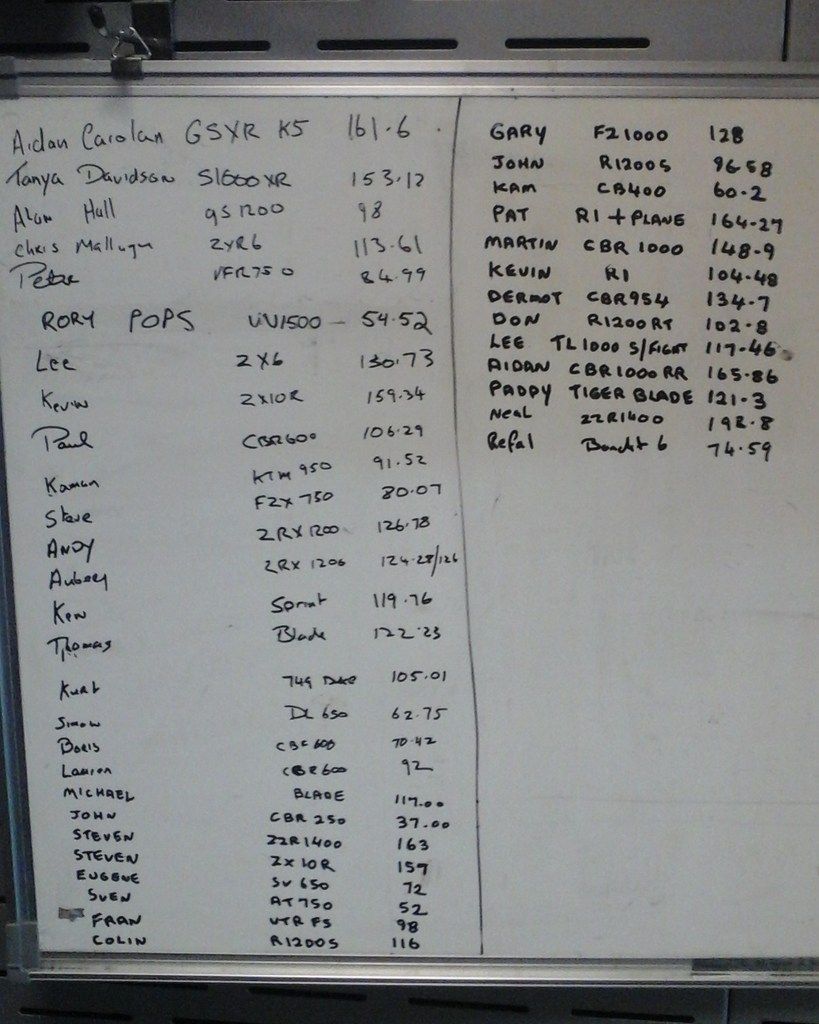 Aidan Carolan GSXR K5 161.6
Tanya Davidson S1000XR 153.12
Alan Hall GS1200 98
Chris ZXR6 113.61
Pete VFR750 84.99
RORY POPS VN1500 - 54.52
Lee ZX6 130.73
Kevin ZX10R 159.34
Paul CBR600 106.29
Kamen KTM 950 91.52
Steve FZX 750 80.07
ANDY ZRX 1200 126.78
Aubrey ZRX 1200 124.28/126
Ken Sprint 119.76
Thomas Blade 122.23
Kurt 749 105.01
Simon DL 650 62.75
Boris CBF600 70.42
Lauren CBR600 92
MICHAEL BLADE 117.00
JOHN CBR 250 37.00
STEVEN ZZR1400 163
STEVEN ZX10R 157
EUGENE SV 650 72
SVEN AT750 52
FRAN VTR FS 98
COLIN R1200S 116
GARY FZ1000 128
JOHN R1200S 96.58
KAM CB400 60.2
PAT R1 + PLANE 164.27
MARTIN CBR 1000 148.9
KEVIN R1 104.48
DERMOT CBR954 134.7
DON R1200RT 102.8
LEE TL1000 S/FIGHT 117.46
AIDAN CBR1000RR 165.86
PADDY TIGER BLADE 121.3
Neal ZZR1400 198.8
Refal Bandit 6 74.59